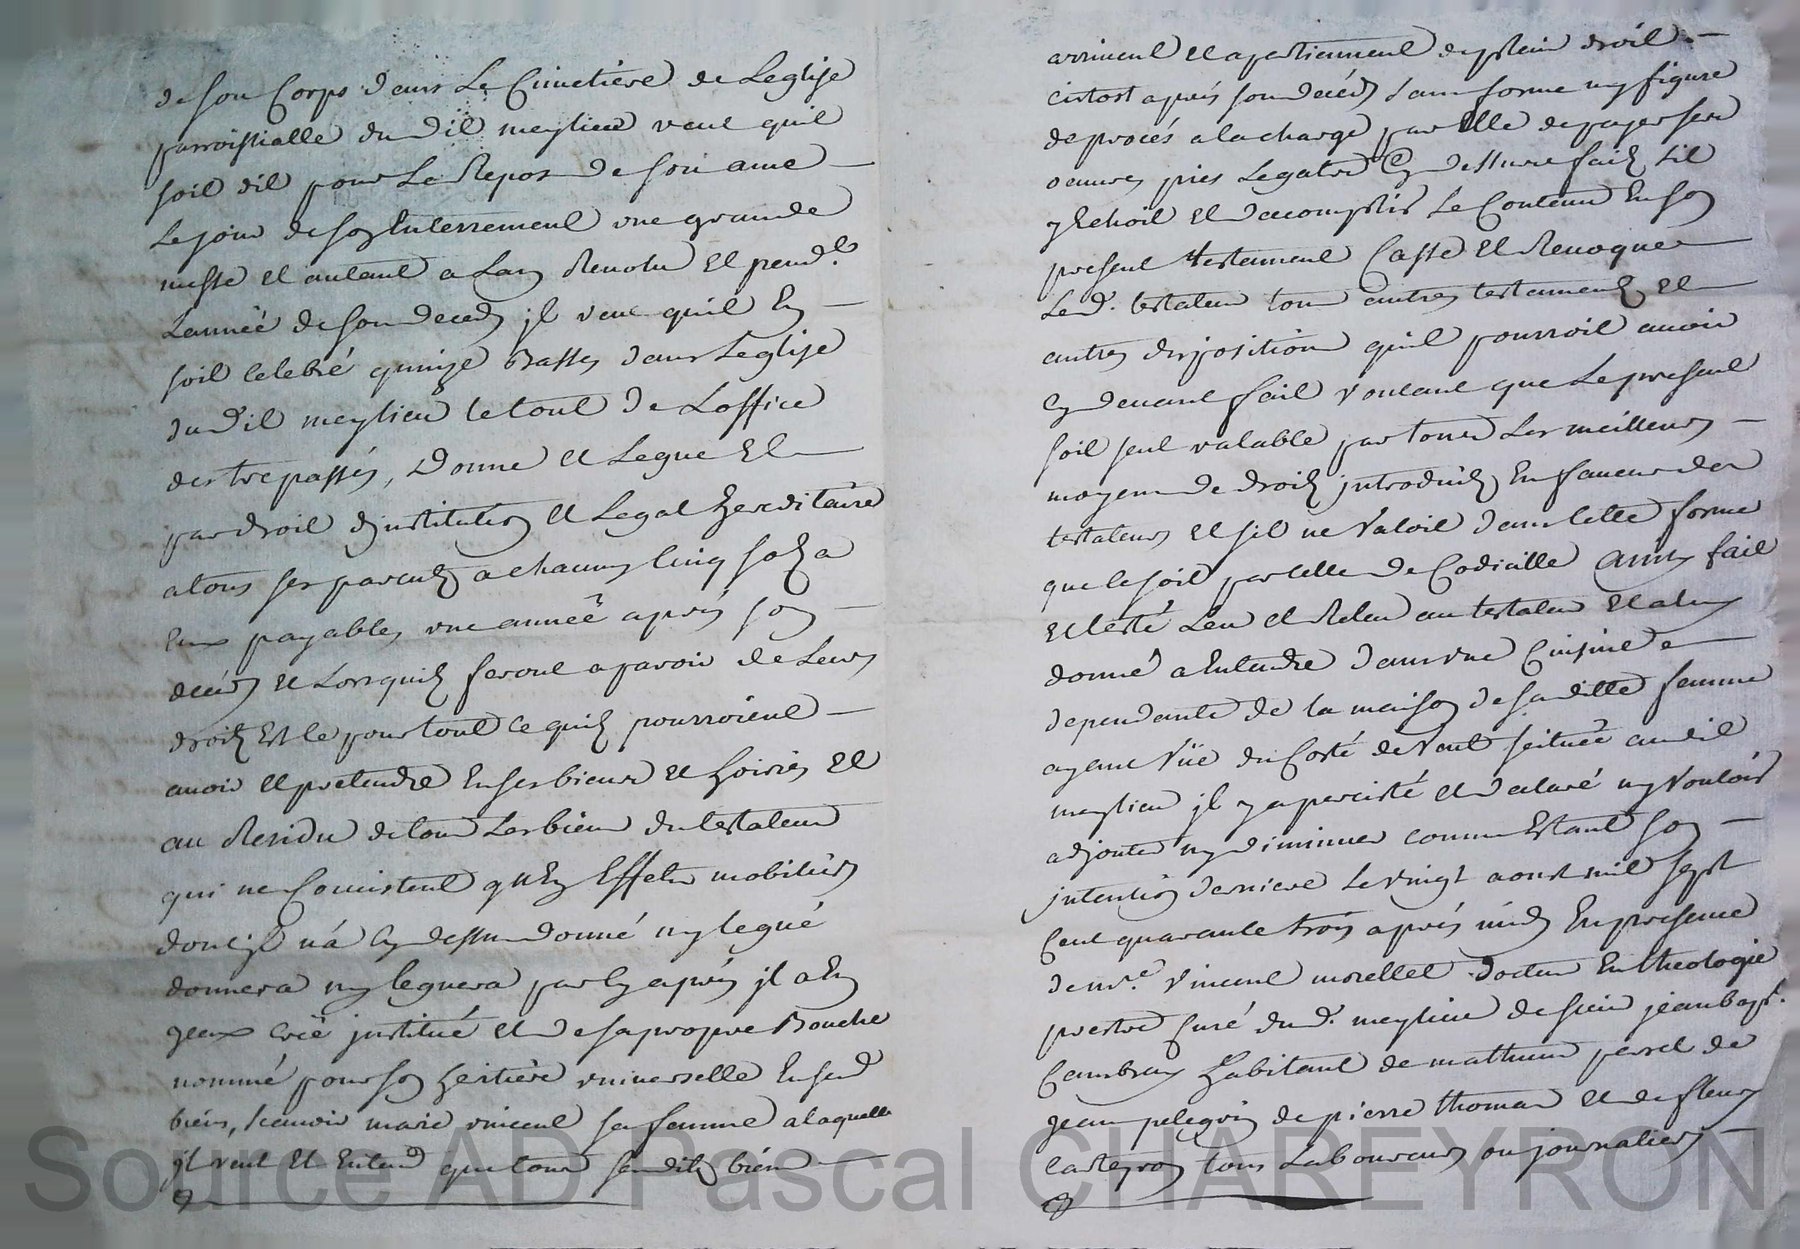 de son Corps dans Le Cimetière de Leglise
parroissialle du dit meylieu veut quil
soit dit pour Le Repos de son ame
Le jour de son Enterrement une grande
messe et autant a Lan Revolu Et pend.t
Lannéé de son deceds jl veut quil En
soit Celebré quinze Basses dans Leglise
du dit meylieu le tout de Loffice
des trepassés, Donne et Legue Et
par droit d'institution et Legat hereditaire
a tous ses parents a chacuns Cinq sols a
Eux payables une annéé après son
décéds et Lorsquils seront a paroir de Leurs
droits Est ce pour tout ce quils pourroient
avoir et pretendre En ses biens et hoiries Et
au Residu de tous Les biens du testateur
qui ne Consistent qu'En Effets mobiliers
dont jl n'a Cy dessus donné ny legué
donnera ny leguera par Cy après jl a En
jceux créé justitué et de sa propre Bouche
nommé pour son heritière universelle En sesd
biens, scavoir marie vincent sa femme a laquelle
jl veut Et Entend que tous sesdits biens
arrivent et apartiennent de plein droit
Cistost après son décéds sans forme ny figure
de procès a la charge par Elle de payer ses
oeuvres pies Legats Cy dessus faits sil
y Echoit et dacomplir Le Contenu En son
present testament Casse et Revoque
Le d. testateur tous autres testaments et
autres disposition quil pourroit avoir
Cy devant fait voulant que Le present
soit seul valable par tous Les meilleurs
moyens de droits jntroduits En faveur des
testateurs et sil ne valoit dans Cette forme
que ce soit par Celle de Codicille Ainsy fait
et Esté Leu et Releu au testateur et a luy
donné a Entendre dans une Cuisine
dependante de la maison de sa ditte femme
ayant vüe du Costé de vent scituée audit
meylieu jl y a percisté et déclaré ny vouloir
adjouter ny diminuer comme Estant son
jntention derniere Le vingt aoust mil sept
Cent quarante trois après midy En presence
de m.re vincent morellet docteur En theologie
prestre Curé dud. meylieu de sieur jean bapt.
Cambray habitant de mathieu perret de
jean pelegrin de pierre thomas et de fleury
Casteyron tous Laboureurs ou journaliers
Source AD Pascal CHAREYRON